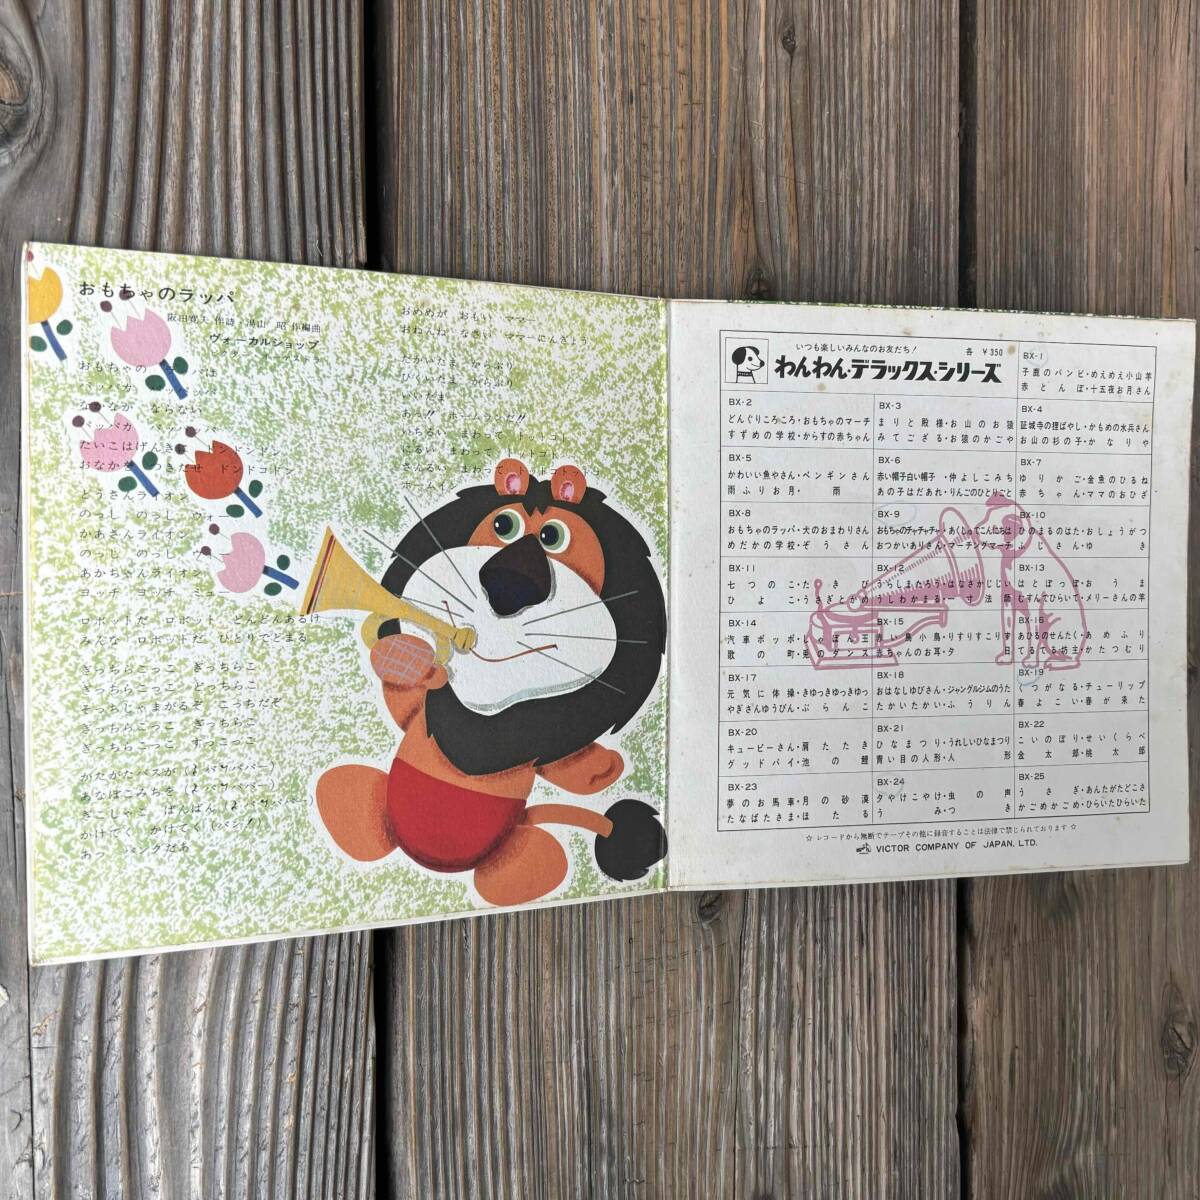 おもちゃのラッパ
阪田寛夫 作詩・湯山 昭 作編曲
ヴォーカルショップ
おもちゃの ラッパは
なかなか ならない
たいこはげんきに ドンドンドン
おなかを つきだせ ドンドコドン
とうさんライオン
のっし のっし ウォー
かあさんライオン
のっし のっし
あかちゃんライオン
ヨッチ ヨッチ
ロボットだ ロボット どんどんあるけ
みんな ロボットだ ひとりでとまる
ぎっちらこっこ ぎっちらこ
ぎっちらこっこ どっちらこ
そっちじゃまがるぞ こっちだぞ
ぎっちらこっこ ぎっちらこ
ぎっちらこっこ すっこっこ
がたがたバスが
あなぼこみちを
かけてく かけてく
あっ パンクだあ
おめめが おもい ママー
おわんね なさい ママーにんぎょう
あっ!! ホームランだ!!
いちるい まわって トットコト
にるい まわって トットコト
さんるい まわって トットコトットコ
ホームイン
いつも楽しいみんなのお友だち!
各 ¥350
わんわん・デラックス・シリーズ
BX-1
子鹿のバンビ・めえめえ小山羊
赤とんぼ・十五夜お月さん
BX-2
どんぐりころころ・おもちゃのマーチ
すずめの学校・からすの赤ちゃん
BX-3
まりと殿様・お山のお猿
みてござる・お猿のかごや
BX-4
証城寺の狸ばやし・かもめの水兵さん
お山の杉の子・かなりや
BX-5
かわいい魚やさん・ペンギンさん
雨ふりお月・雨
BX-6
赤い帽子白い帽子・仲よしこみち
あの子はだあれ・りんごのひとりごと
BX-7
ゆりかご・金魚のひるね
赤ちゃん・ママのおひざ
BX-8
おもちゃのラッパ・犬のおまわりさん
めだかの学校・ぞうさん
BX-9
おもちゃのチャチャチャ・あくしゅでこんにちは
おつかいありさん・マーチングマーチ
BX-10
ひのまるのはた・おしょうがつ
ふじさん・ゆき
BX-11
七つのこ・たきび
ひよこ・うさぎとかめ
BX-12
うらしまたろう・はなさかじじい
うしわかまる・一寸法師
BX-13
はとぽっぽ・おうま
むすんでひらいて・メリーさんの羊
BX-14
汽車ポッポ・しゃぼん玉
歌の町・兎のダンス
BX-15
赤い鳥小鳥・りすりすこりす
赤ちゃんのお耳・夕日
BX-16
あひるのせんたく・あめふり
てるてる坊主・かたつむり
BX-17
元気に体操・きゆっきゆっきゆっ
やぎさんゆうびん・ぶらんこ
BX-18
おはなしゆびさん・ジャングルジムのうた
たかいたかい・ふうりん
BX-19
くつがなる・チューリップ
春よこい・春が来た
BX-20
キューピーさん・肩たたき
グッドバイ・池の鯉
BX-21
ひなまつり・うれしいひなまつり
青い目の人形・人形
BX-22
こいのぼり・せいくらべ
金太郎・桃太郎
BX-23
夢のお馬車・月の砂漠
たなばたさま・ほたる
BX-24
夕やけこやけ・虫の声
うみ・つき
BX-25
うさぎ・あんたがたどこさ
かごめかごめ・ひらいたひらいた
☆ レコードから無断でテープその他に録音することは法律で禁じられております ☆
VICTOR COMPANY OF JAPAN, LTD.